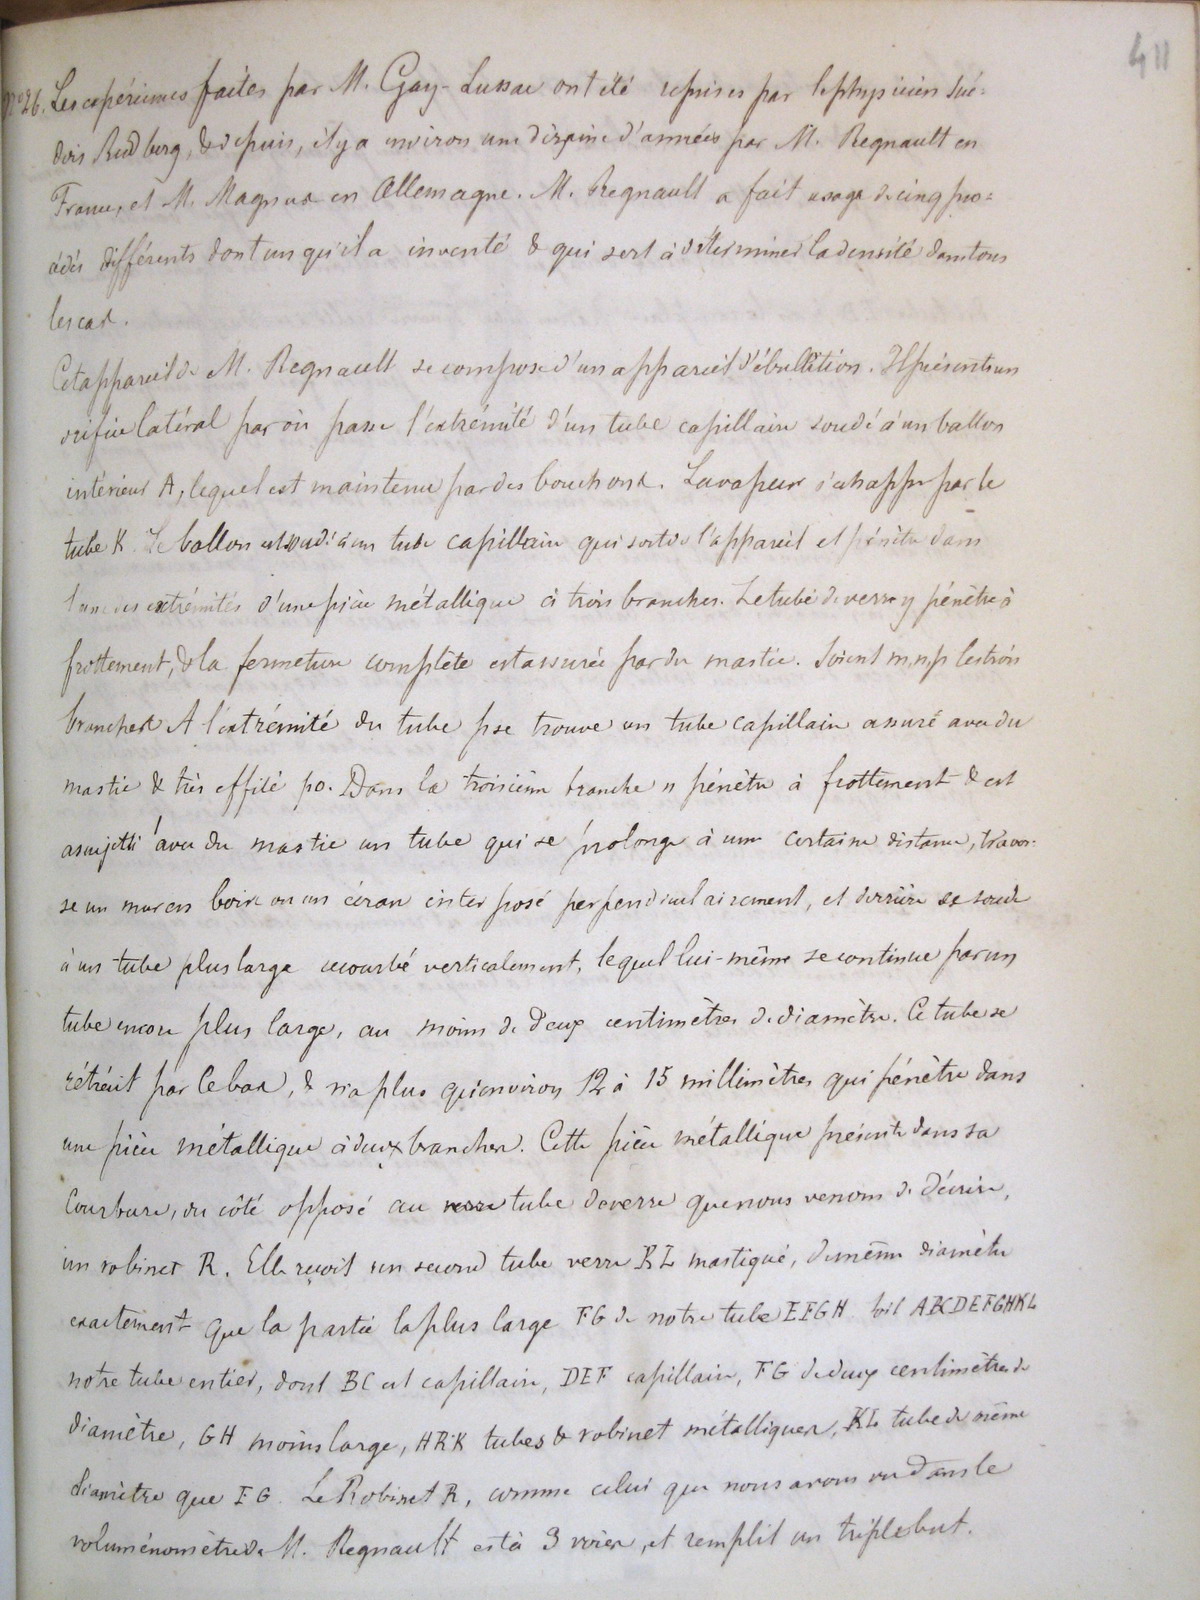 411
N°26. Les expériences faites par M. Gay-Lussac ont été reprises par le physicien Sué-
dois Rudberg, & depuis, il y a environ une dizaine d'années par M. Regnault en
France, et M. Magnus en Allemagne. M. Regnault a fait usage de cinq pro=
cédés différents dont un qu'il a inventé & qui sert à déterminer la densité dans tous
les cas.
Cet appareil de M. Regnault se compose d'un appareil d'ébullition. Il présente un
orifice latéral par où passe l'extrémité d'un tube capillaire soudé à un ballon
intérieur A, lequel est maintenu par des bouchons. La vapeur s'échappe par le
tube K. Le ballon est soudé à un tube capillaire qui sort de l'appareil et pénètre dans
l'une des extrémités d'une pièce métallique à trois branches. Le tube de verre y pénètre à
frottement, & la fermeture complète est assurée par du mastic. Soient m, n, p les trois
branches. A l'extrémité du tube p se trouve un tube capillaire assuré avec du
mastic & très effilé po. Dans la troisième branche n pénètre à frottement & est
assujetti avec du mastic un tube qui se prolonge à une certaine distance, traver-
se un mur en bois ou un écran interposé perpendiculairement, et derrière se soude
à un tube plus large recourbé verticalement, lequel lui-même se continue par un
tube encore plus large, au moins de deux centimètres de diamètre. Ce tube se
rétrécit par le bas, & n'a plus qu'environ 12 à 15 millimètres qui pénètre dans
une pièce métallique à deux branches. Cette pièce métallique présente dans sa
courbure, du côté opposé au verre tube de verre que nous venons de décrire,
un robinet R. Elle reçoit un second tube verre KL mastiqué, de même diamètre
exactement que la partie la plus large FG de notre tube EFGH soit ABCDEFGHKL
notre tube entier, dont BC est capillaire, DEF capillaire, FG de deux centimètres de
diamètre, GH moins large, HRK tubes & robinet métalliques, KL tube de même
diamètre que FG. Le Robinet R, comme celui que nous avons vu dans le
voluménomètre de M. Regnault est à 3 voies, et remplit un triple but.